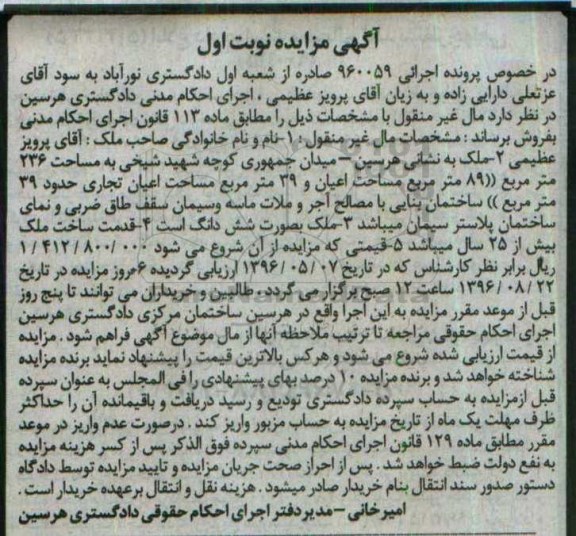 آگهی مزایده نوبت اول
در خصوص پرونده اجرائی ۹۶۰۰۵۹ صادره از شعبه اول دادگستری نورآباد به سود آقای
عزتعلی دارایی زاده و به زیان آقای پرویز عظیمی ، اجرای احکام مدنی دادگستری هرسین
در نظر دارد مال غیر منقول با مشخصات ذیل را مطابق ماده ۱۱۳ قانون اجرای احکام مدنی
بفروش برساند : مشخصات مال غیر منقول : ۱-نام و نام خانوادگی صاحب ملک : آقای پرویز
عظیمی ۲-ملک به نشانی هرسین – میدان جمهوری کوچه شهید شیخی به مساحت ۲۳۶
متر مربع ((۸۹ متر مربع مساحت اعیان و ۳۹ متر مربع مساحت اعیان تجاری حدود ۳۹
متر مربع )) ساختمان بنایی با مصالح آجر و ملات ماسه وسیمان سقف طاق ضربی و نمای
ساختمان پلاستر سیمان میباشد ۳-ملک بصورت شش دانگ است ۴-قدمت ساخت ملک
بیش از ۲۵ سال میباشد ۵-قیمتی که مزایده از آن شروع می شود ۱/۴۱۲/۸۰۰/۰۰۰
ریال برابر نظر کارشناس که در تاریخ ۱۳۹۶/۰۵/۰۷ ارزیابی گردیده ۶-روز مزایده در تاریخ
۱۳۹۶/۰۸/۲۲ ساعت ۱۲ صبح برگزار می گردد . طالبین و خریداران می توانند تا پنج روز
قبل از موعد مقرر مزایده به این اجرا واقع در هرسین ساختمان مرکزی دادگستری هرسین
اجرای احکام حقوقی مراجعه تا ترتیب ملاحظه آنها از مال موضوع آگهی فراهم شود . مزایده
از قیمت ارزیابی شده شروع می شود و هرکس بالاترین قیمت را پیشنهاد نماید برنده مزایده
شناخته خواهد شد و برنده مزایده ۱۰ درصد بهای پیشنهادی را فی المجلس به عنوان سپرده
قبل ازمزایده به حساب سپرده دادگستری تودیع و رسید دریافت و باقیمانده آن را حداکثر
ظرف مهلت یک ماه از تاریخ مزایده به حساب مزبور واریز کند . درصورت عدم واریز در موعد
مقرر مطابق ماده ۱۲۹ قانون اجرای احکام مدنی سپرده فوق الذکر پس از کسر هزینه مزایده
به نفع دولت ضبط خواهد شد . پس از احراز صحت جریان مزایده و تایید مزایده توسط دادگاه
دستور صدور سند انتقال بنام خریدار صادر میشود . هزینه نقل و انتقال برعهده خریدار است .
امیرخانی – مدیر دفتر اجرای احکام حقوقی دادگستری هرسین